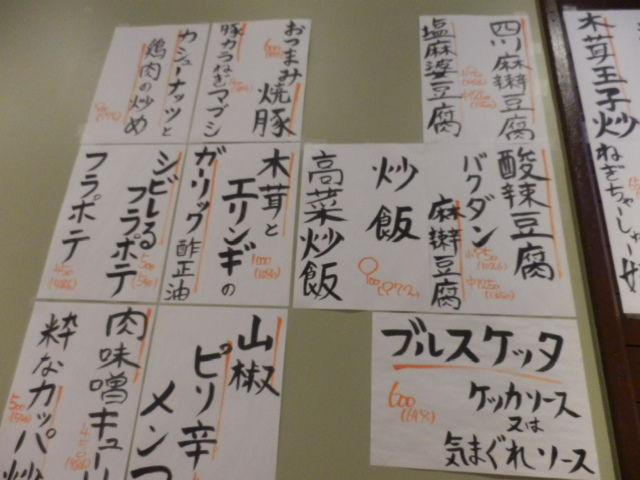 木茸玉子炒
ねぎちゃーしゅー
四川麻辣豆腐
塩麻婆豆腐
おつまみ焼豚
600
豚カラねぎマブシ
カシューナッツと
鶏肉の炒め
酸辣豆腐
バクダン
麻辣豆腐
炒飯
高菜炒飯
900(972)
木茸と
エリンギの
ガーリック酢正油
1000
(1080)
シビレる
フラポテ
500
(540)
フラポテ
450
(486)
ブルスケッタ
600
(648)
ケッカソース
又は
気まぐれソース
山椒
ピリ辛
メン
肉味噌キュー
粋なカッパ炒
500
(540)